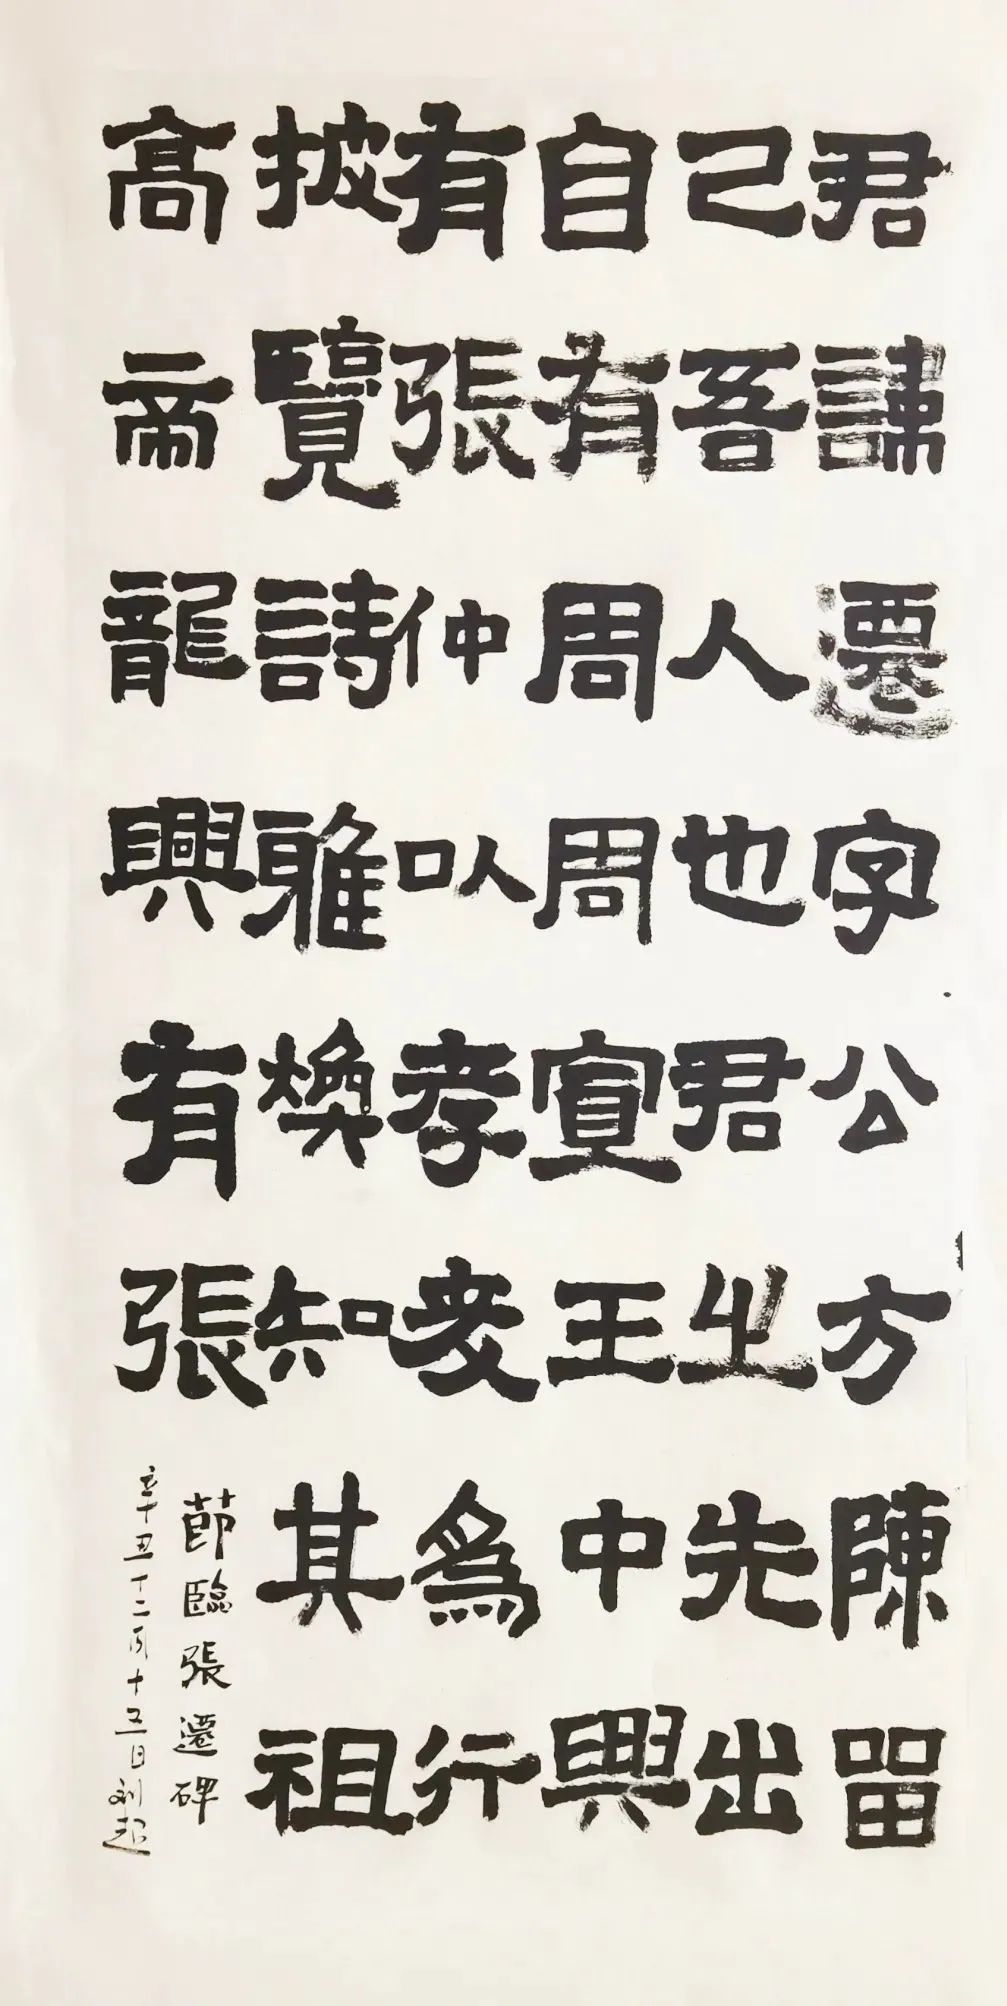 君諱遷字公方陳留
己吾人也君之先出
自有周周宣王中興
有張仲以孝友為行
披覽詩雅煥知其祖
高帝龍興有張
節臨張遷碑
辛丑十二月十五日刘超